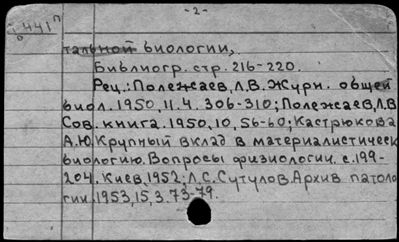 -2-
441п
тальной биологии,
Библиогр. стр. 216-220.
Рец.: Полежаев, Л.В. Журн. общей
биол. 1950, 11. 4. 306-310; Полежаев, Л.В
Сов. книга. 1950, 10, 56-60; Кастрюкова
А.Ю. Крупный вклад в материалистическ
биологию. Вопросы физиологии. с. 199-
204. Киев, 1952; Л.С. Сутулов. Архив патоло
гии. 1953, 15, 3. 73-79.